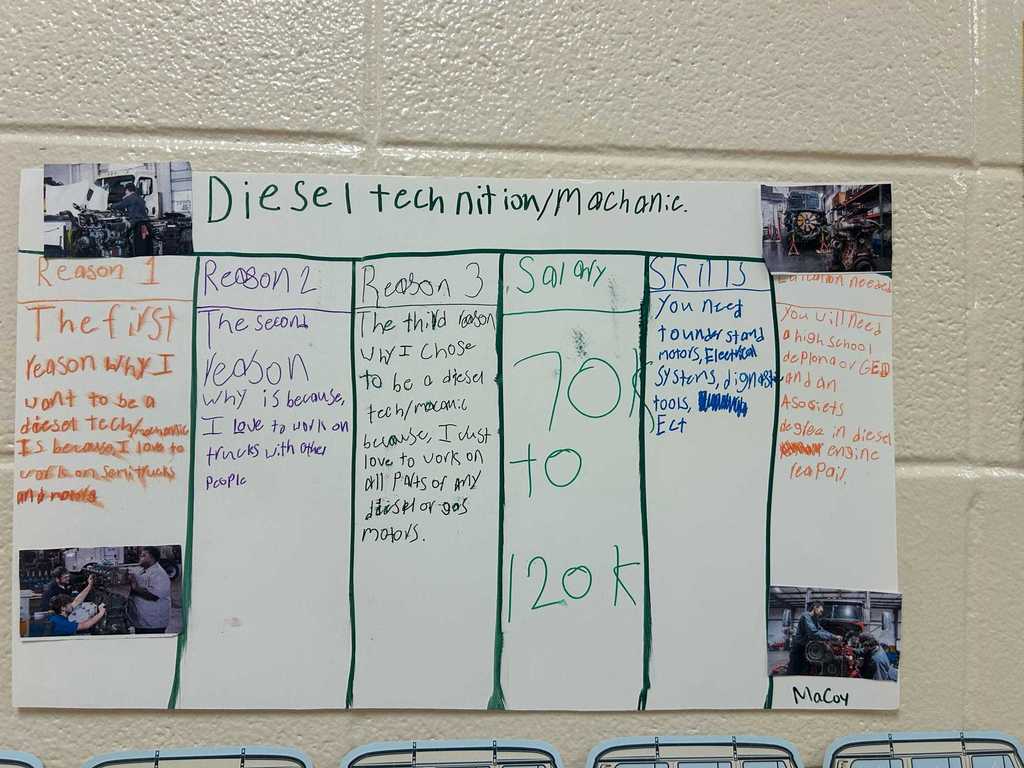 Diesel technition/Machanic.
Reason 1
The first
reason why I
want to be a
diesel tech/mechanic
Is because, I love to
work on semi trucks
and motors
Reason 2
The second
reason
why is because,
I love to work on
trucks with other
people
Reason 3
The third reason
why I chose
to be a diesel
tech/macanic
because, I Just
love to work on
all parts of any
diesel or gas
motors.
Salary
70K
to
120K
Skills
You need
to understand
motors, Electrical
systems, dignostic
tools,
Ect
Education needed
You will need
a high school
deploma or GED
and an
Asosiets
deglee in diesel
engine
reapair.
MaCoy